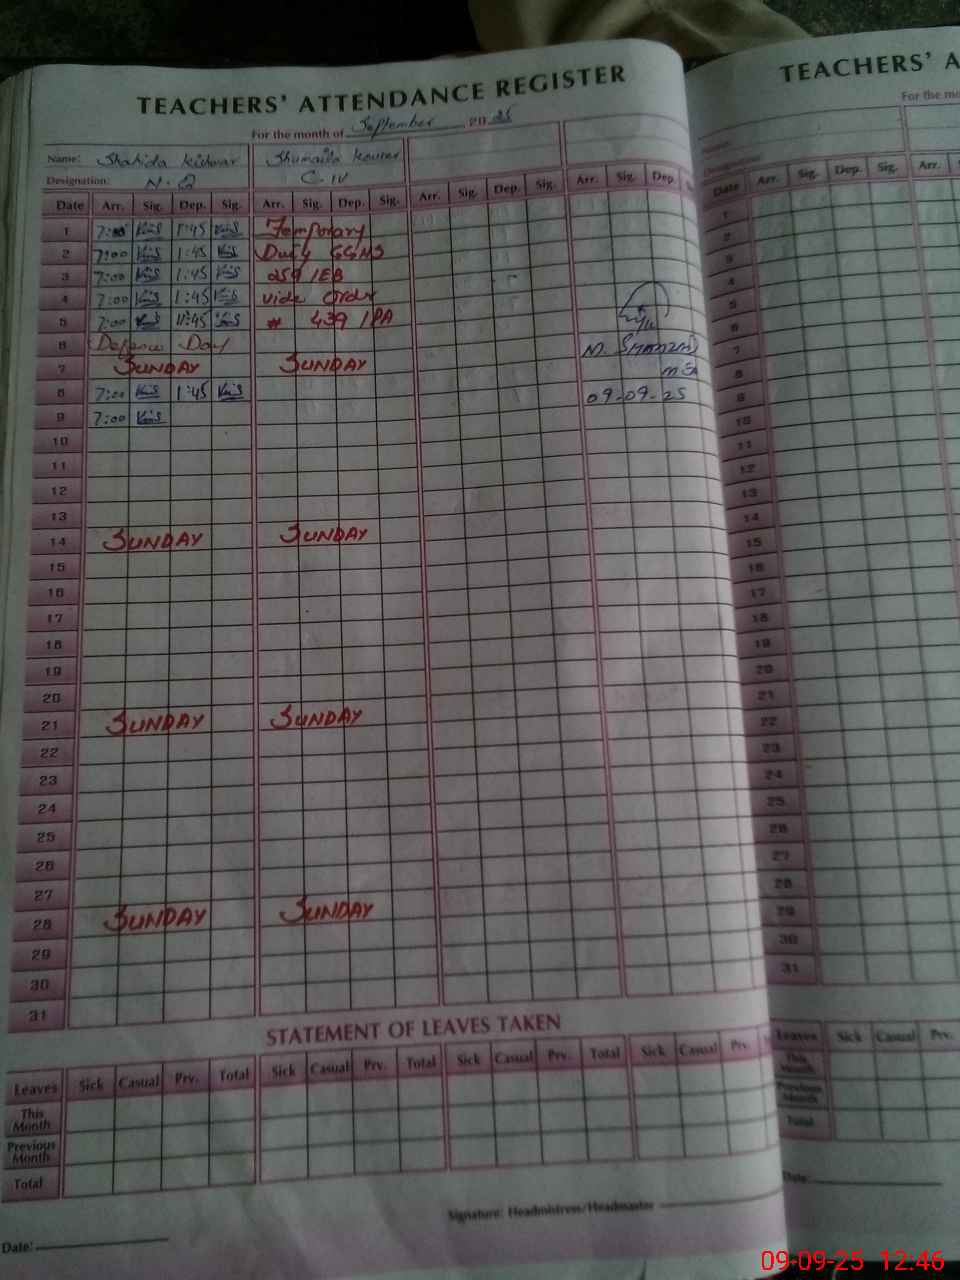 TEACHERS' ATTENDANCE REGISTER
For the month of September 2025
Name: Shahida Kishwar Shumaila Kousar
Designation: N.Q C-IV
Date Arr. Sig. Dep. Sig. Arr. Sig. Dep. Sig. Arr. Sig. Dep. Sig. Arr. Sig. Dep.
1 7:00 1:45 Temporary
2 7:00 1:45 Duty GGHS
3 7:00 1:45 259/EB
4 7:00 1:45 vide Order
5 7:00 1:45 # 439/PA
6 Defence Day
7 SUNDAY SUNDAY
8 7:00 1:45
9 7:00
09-09-25
10
11
12
13
14 SUNDAY SUNDAY
15
16
17
18
19
20
21 SUNDAY SUNDAY
22
23
24
25
26
27
28 SUNDAY SUNDAY
29
30
31
STATEMENT OF LEAVES TAKEN
Leaves Sick Casual Prv. Total Sick Casual Prv. Total Sick Casual Prv. Total Sick Casual Prv.
This Month
Previous Month
Total
Signature: Headmistress/Headmaster
Date:
TEACHERS' A
For the mo
Date Arr. Sig. Dep. Sig. Arr.
1
2
3
4
5
6
7
8
9
10
11
12
13
14
15
16
17
18
19
20
21
22
23
24
25
26
27
28
29
30
31
Leaves Sick Casual Prv.
This Month
Previous Month
Total
Date:
09-09-25 12:46